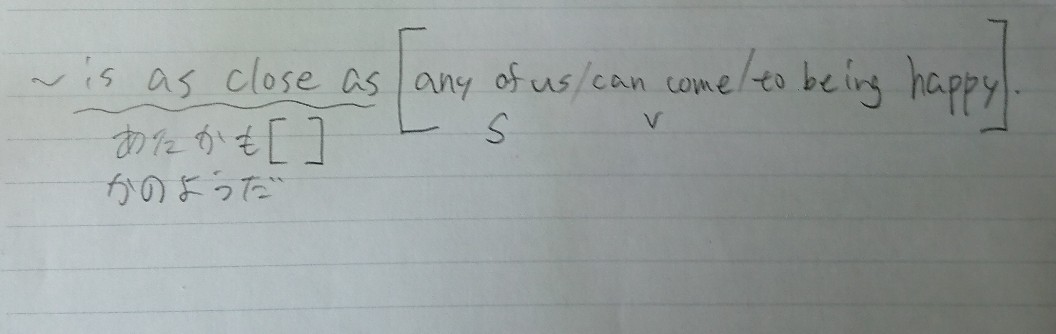 ~ is as close as [any of us/can come/to being happy].
S V
あたかも[ ]
かのようだ